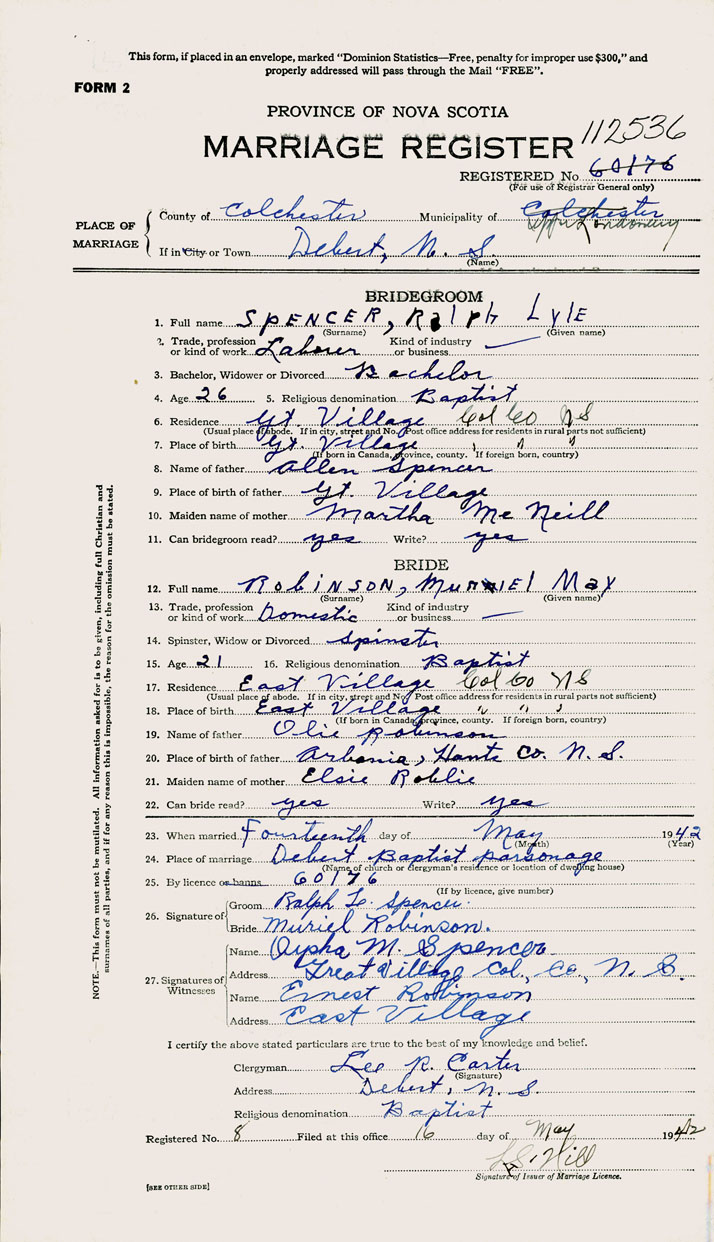 This form, if placed in an envelope, marked "Dominion Statistics—Free, penalty for improper use $300," and
properly addressed will pass through the Mail "FREE".
FORM 2
PROVINCE OF NOVA SCOTIA
MARRIAGE REGISTER 112536
REGISTERED No 60176
(For use of Registrar General only)
PLACE OF MARRIAGE
County of Colchester Municipality of Colchester
If in City or Town Debert, N. S.
(Name)
BRIDEGROOM
1. Full name SPENCER, Ralph LylE
(Surname) (Given name)
2. Trade, profession or kind of work Laborer Kind of industry or business —
3. Bachelor, Widower or Divorced Bachelor
4. Age 26 5. Religious denomination Baptist
6. Residence Gt. Village Col Co NS
(Usual place of abode. If in city, street and No. Post office address for residents in rural parts not sufficient)
7. Place of birth Gt. Village " " "
(If born in Canada, province, county. If foreign born, country)
8. Name of father Allen Spencer
9. Place of birth of father Gt. Village
10. Maiden name of mother Martha McNeill
11. Can bridegroom read? yes Write? yes
BRIDE
12. Full name RobINSON, MurIEl May
(Surname) (Given name)
13. Trade, profession or kind of work Domestic Kind of industry or business —
14. Spinster, Widow or Divorced Spinster
15. Age 21 16. Religious denomination Baptist
17. Residence East Village Col Co NS
(Usual place of abode. If in city, street and No. Post office address for residents in rural parts not sufficient)
18. Place of birth East Village " " "
(If born in Canada, province, county. If foreign born, country)
19. Name of father Olie Robinson
20. Place of birth of father Hants Co. N. S.
21. Maiden name of mother Elsie
22. Can bride read? yes Write? yes
23. When married Fourteenth day of May 1942
(Month) (Year)
24. Place of marriage Debert Baptist parsonage
(Name of church or clergyman's residence or location of dwelling house)
25. By licence or banns 60176
(If by licence, give number)
26. Signature of
Groom Ralph L. Spencer.
Bride Muriel Robinson.
27. Signatures of Witnesses
Name Orpha M. Spencer
Address Great Village Col., Co., N. S.
Name Ernest Robinson
Address East Village
I certify the above stated particulars are true to the best of my knowledge and belief.
Clergyman Lee R. Carter
(Signature)
Address Debert, N. S.
Religious denomination Baptist
Registered No. 8 Filed at this office 16 day of May 1942
Hill
Signature of Issuer of Marriage Licence.
[SEE OTHER SIDE]
NOTE.—This form must not be mutilated. All information asked for is to be given, including full Christian and
surnames of all parties, and if for any reason this is impossible, the reason for the omission must be stated.